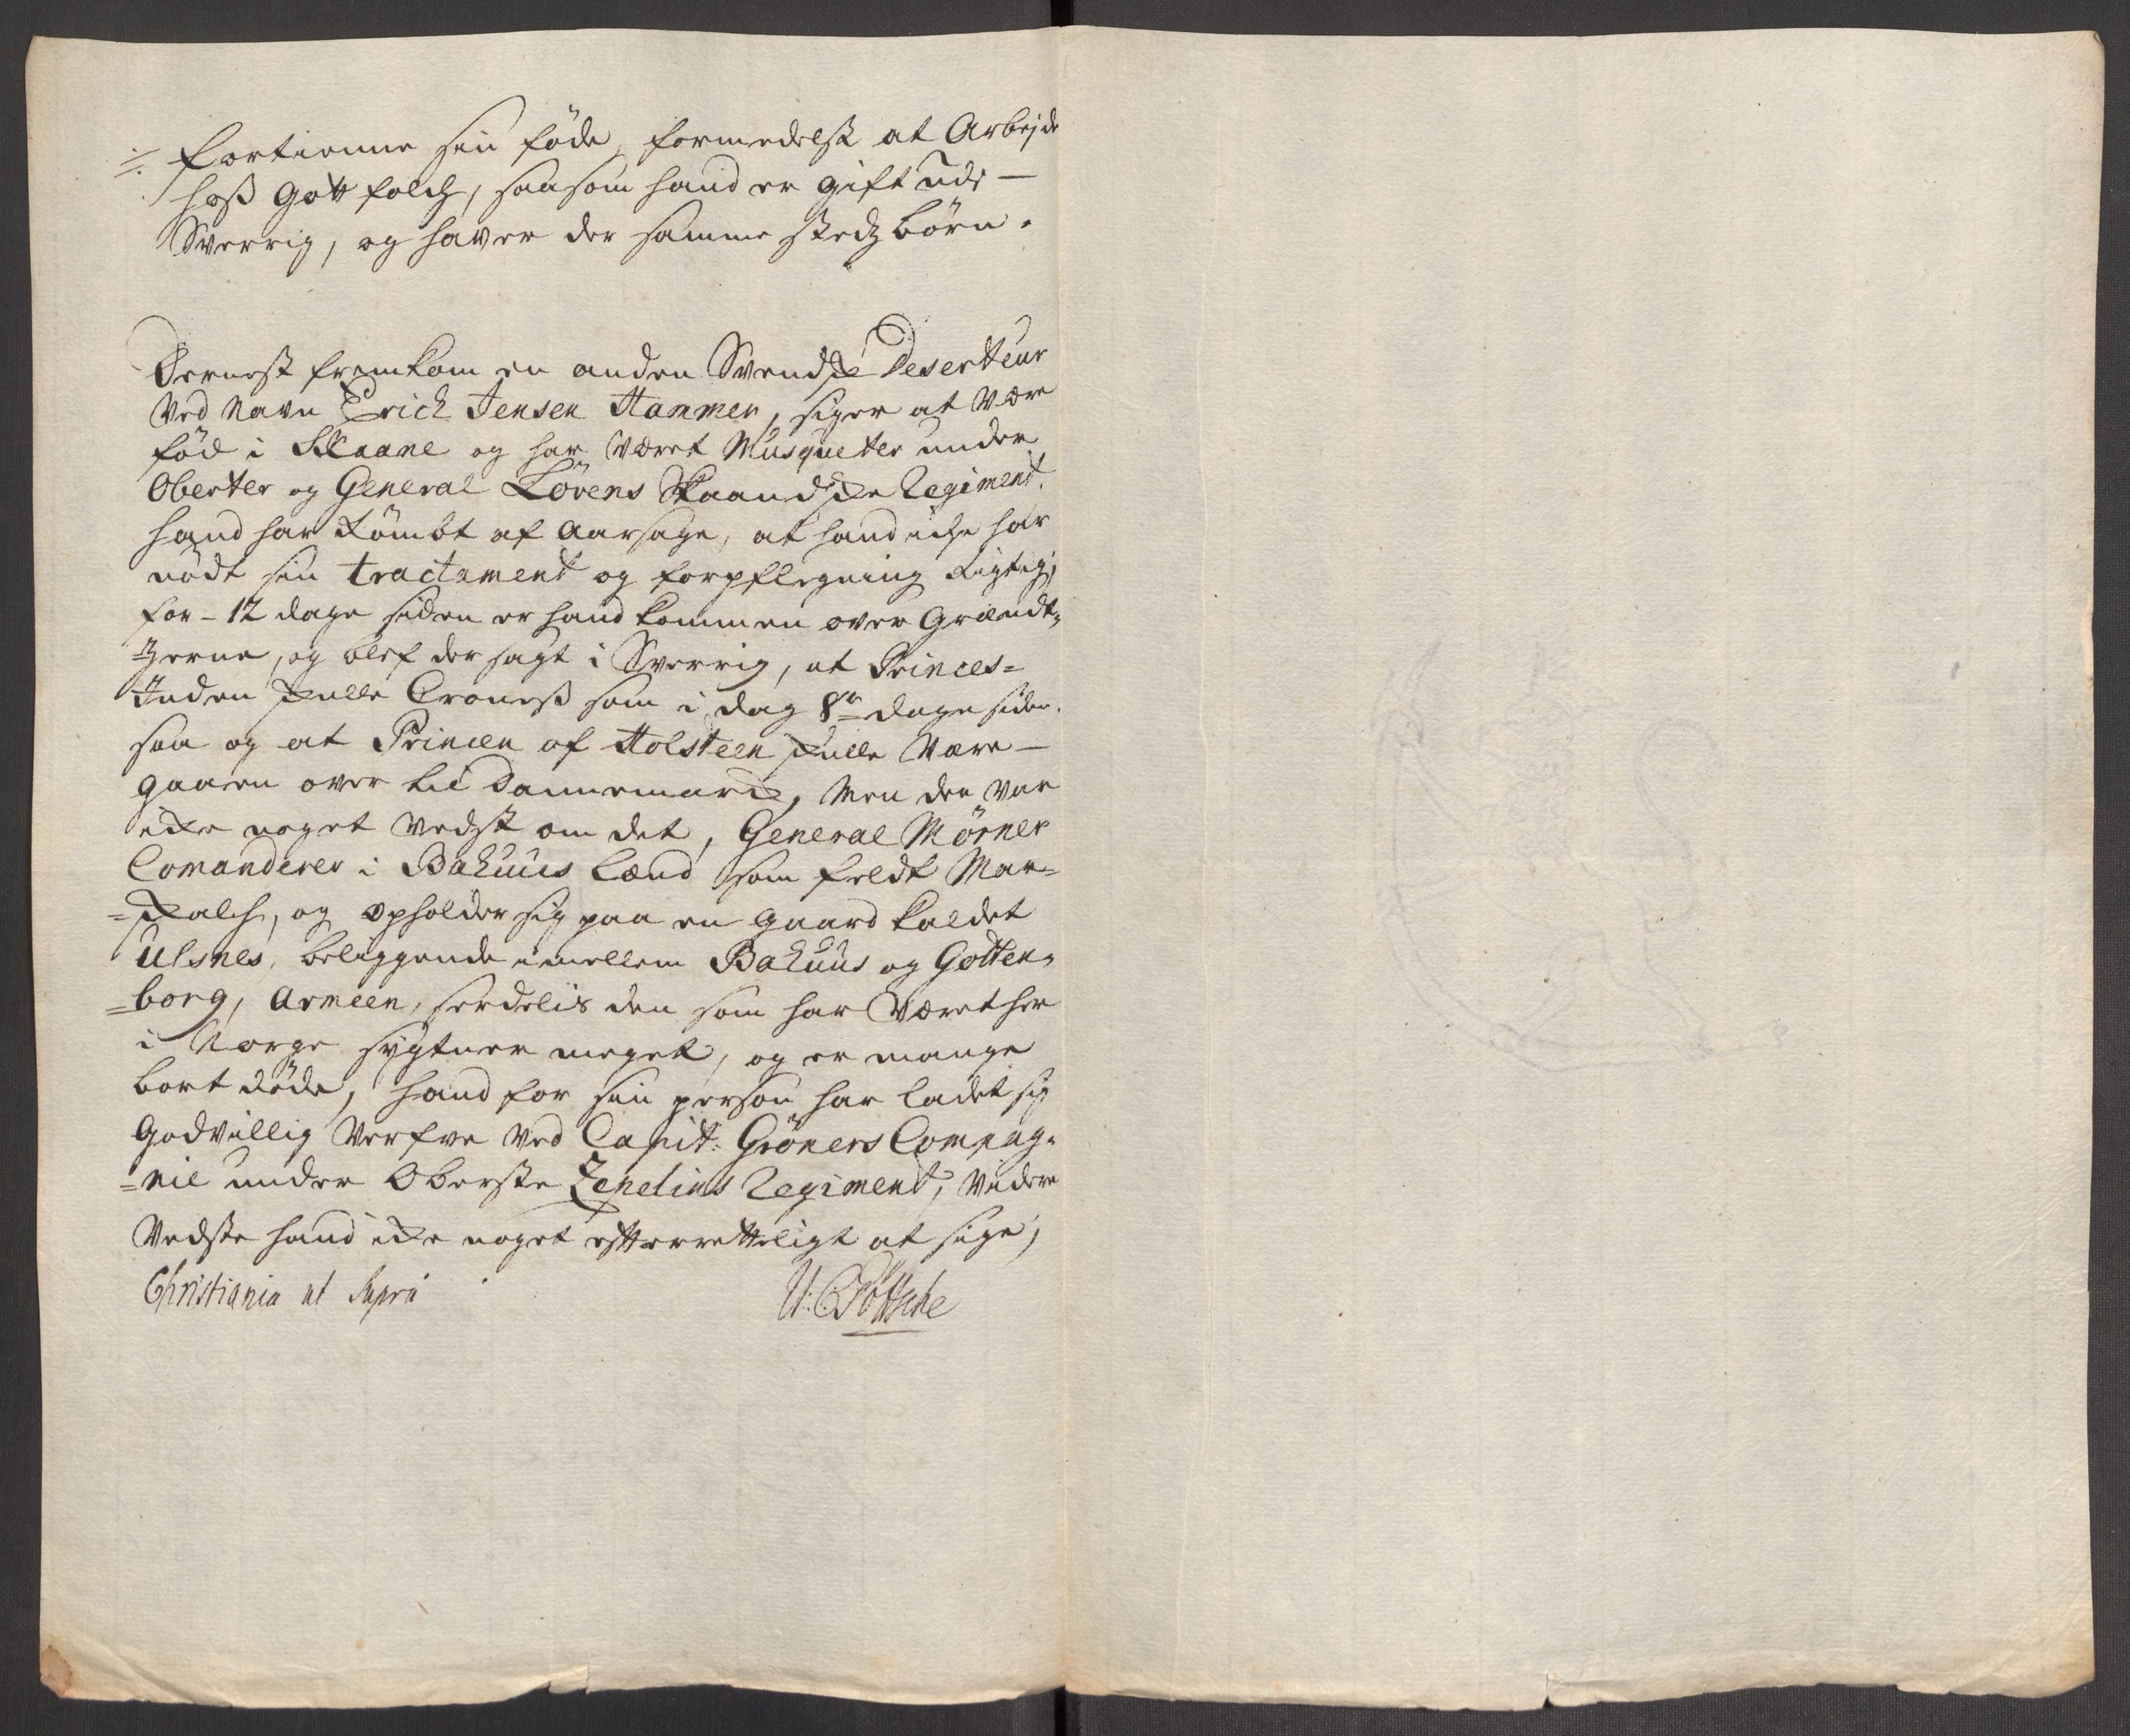 fortienne sin føde, formedelst at Arbejde
hoß Gott folch, saasom hand er gift udi
Sverrig, og haver der samme stedz børn.
Dernest fremkom en anden Svendske Deserteur
ved Navn Erich Jensen Hammer, siger at være
fød i Skaane og har været Musqueter under
Oberster og General Lövens Skaandske Regiment.
hand har Rømbt af Aarsage, at hand iche har
nødt sin tractament og forpflegning Rigtig,
for - 12 dage siden er hand kommen over Grændt-
zerne, og blef der sagt i Sverrig, at Princes-
Inden skulle Croneß som i dag 8te dage siden.
saa og at Princen af Holsteen skulle være
gaaen over til Dannemarck, Men der var
icke noget vedst om det, General Mörner
Comanderer i Bahuus lænd som feldt Mar-
=skalch, og opholder sig paa en gaard kaldet
Ulsnes, beliggende imellem Bahuus og Gotten-
=borg, Armeen, serdelis den som har været her
i Norge sygtner meget, og er mange
bort døde, hand for sin person har ladet sig
Godvillig verfve ved Capit: Gröners Compag-
=nie under Oberste Zepelins Regiment, videre
Vedste hand icke noget effterretteligt at sige,
Christiania ut Supra
U: C Pøttsche